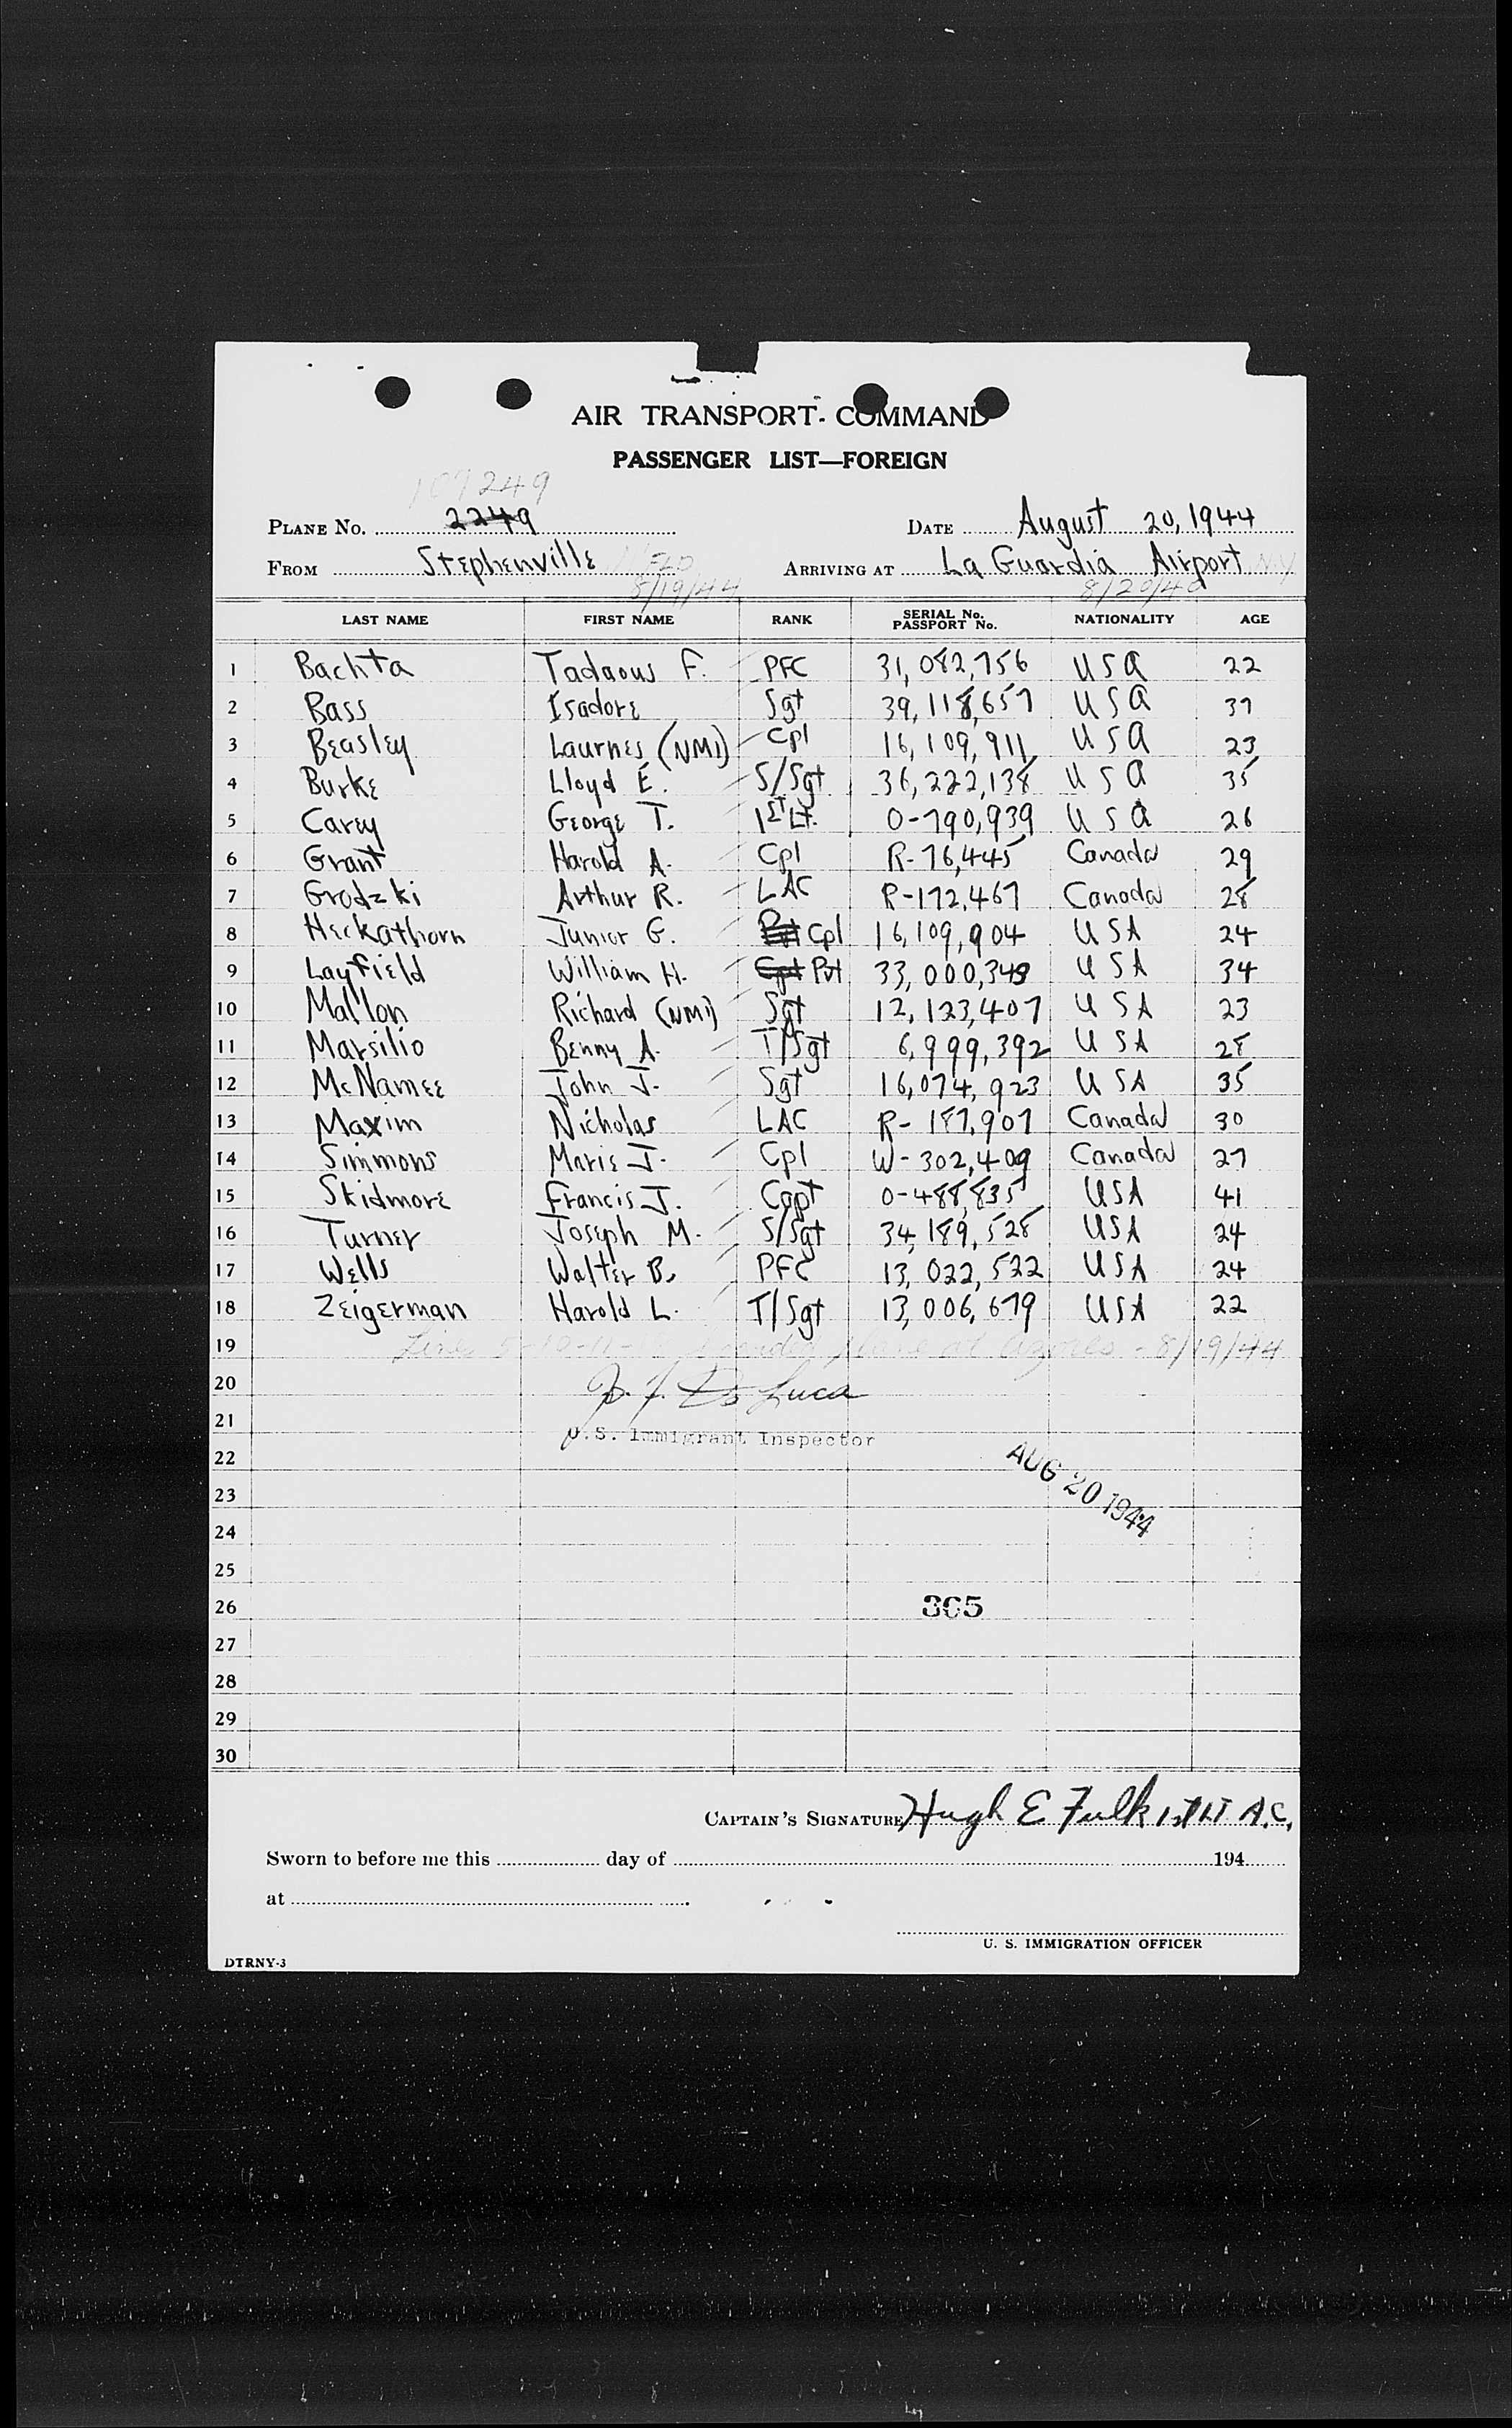 AIR TRANSPORT COMMAND
PASSENGER LIST—FOREIGN
109249
PLANE No. 2249 DATE August 20, 1944
FROM Stephenville NFLD ARRIVING AT La Guardia Airport NY
8/19/44 8/20/44
LAST NAME FIRST NAME RANK SERIAL No. PASSPORT No. NATIONALITY AGE
1 Bachta Tadaous F. PFC 31,082,756 USA 22
2 Bass Isadore Sgt 39,118,657 USA 37
3 Beasley Laurnes (NMI) Cpl 16,109,911 USA 23
4 Burke Lloyd E. S/Sgt 36,222,138 USA 35
5 Carey George T. 1st Lt. O-790,939 USA 26
6 Grant Harold A. Cpl R-76,445 Canada 29
7 Grodzki Arthur R. LAC R-172,467 Canada 28
8 Heckathorn Junior G. Pvt Cpl 16,109,904 USA 24
9 Layfield William H. Cpl Pvt 33,000,349 USA 34
10 Mallon Richard (NMI) Sgt 12,123,407 USA 23
11 Marsilio Benny A. T/Sgt 6,999,392 USA 28
12 McNamee John J. Sgt 16,074,923 USA 35
13 Maxim Nicholas LAC R-187,907 Canada 30
14 Simmons Marie J. Cpl W-302,409 Canada 27
15 Skidmore Francis J. Capt O-488,835 USA 41
16 Turner Joseph M. S/Sgt 34,189,528 USA 24
17 Wells Walter B. PFC 13,022,522 USA 24
18 Zeigerman Harold L. T/Sgt 13,006,679 USA 22
19 Line 5-10-11- plane at Azores - 8/19/44
20 J. De Luca
21 U.S. Immigrant Inspector
22 AUG 20 1944
23
24
25
26 365
27
28
29
30
CAPTAIN'S SIGNATURE Hugh E Fulk 1st Lt A.C.
Sworn to before me this day of 194
at
U. S. IMMIGRATION OFFICER
DTRNY-3